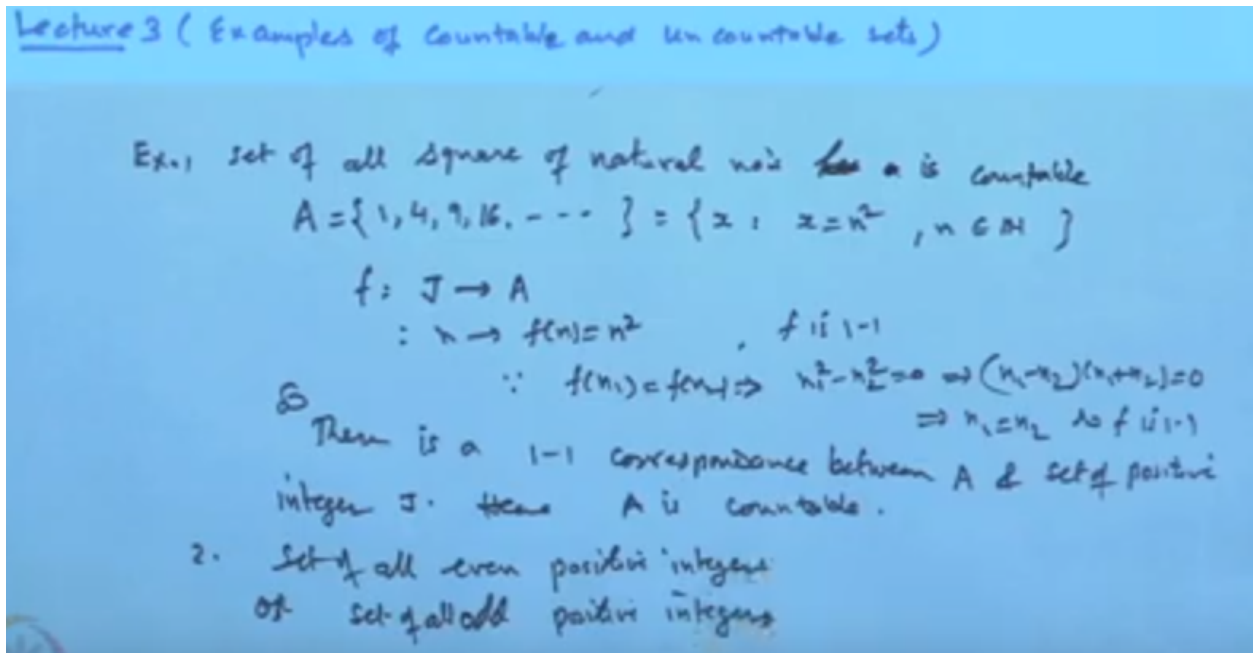 Lecture 3 ( Examples of Countable and Uncountable sets)
Ex.1 Set of all square of natural no's is countable
A = {1, 4, 9, 16, - - - } = { x : x = n², n ∈ ℕ }
f : J → A
: n → f(n) = n² , f is 1-1
∵ f(n₁) = f(n₂) ⇒ n₁² - n₂² = 0 ⇒ (n₁-n₂)(n₁+n₂) = 0
⇒ n₁ = n₂ so f is 1-1
So
There is a 1-1 correspondance between A & set of positive
integer J. Hence A is countable.
2. Set of all even positive integers
or set of all odd positive integers